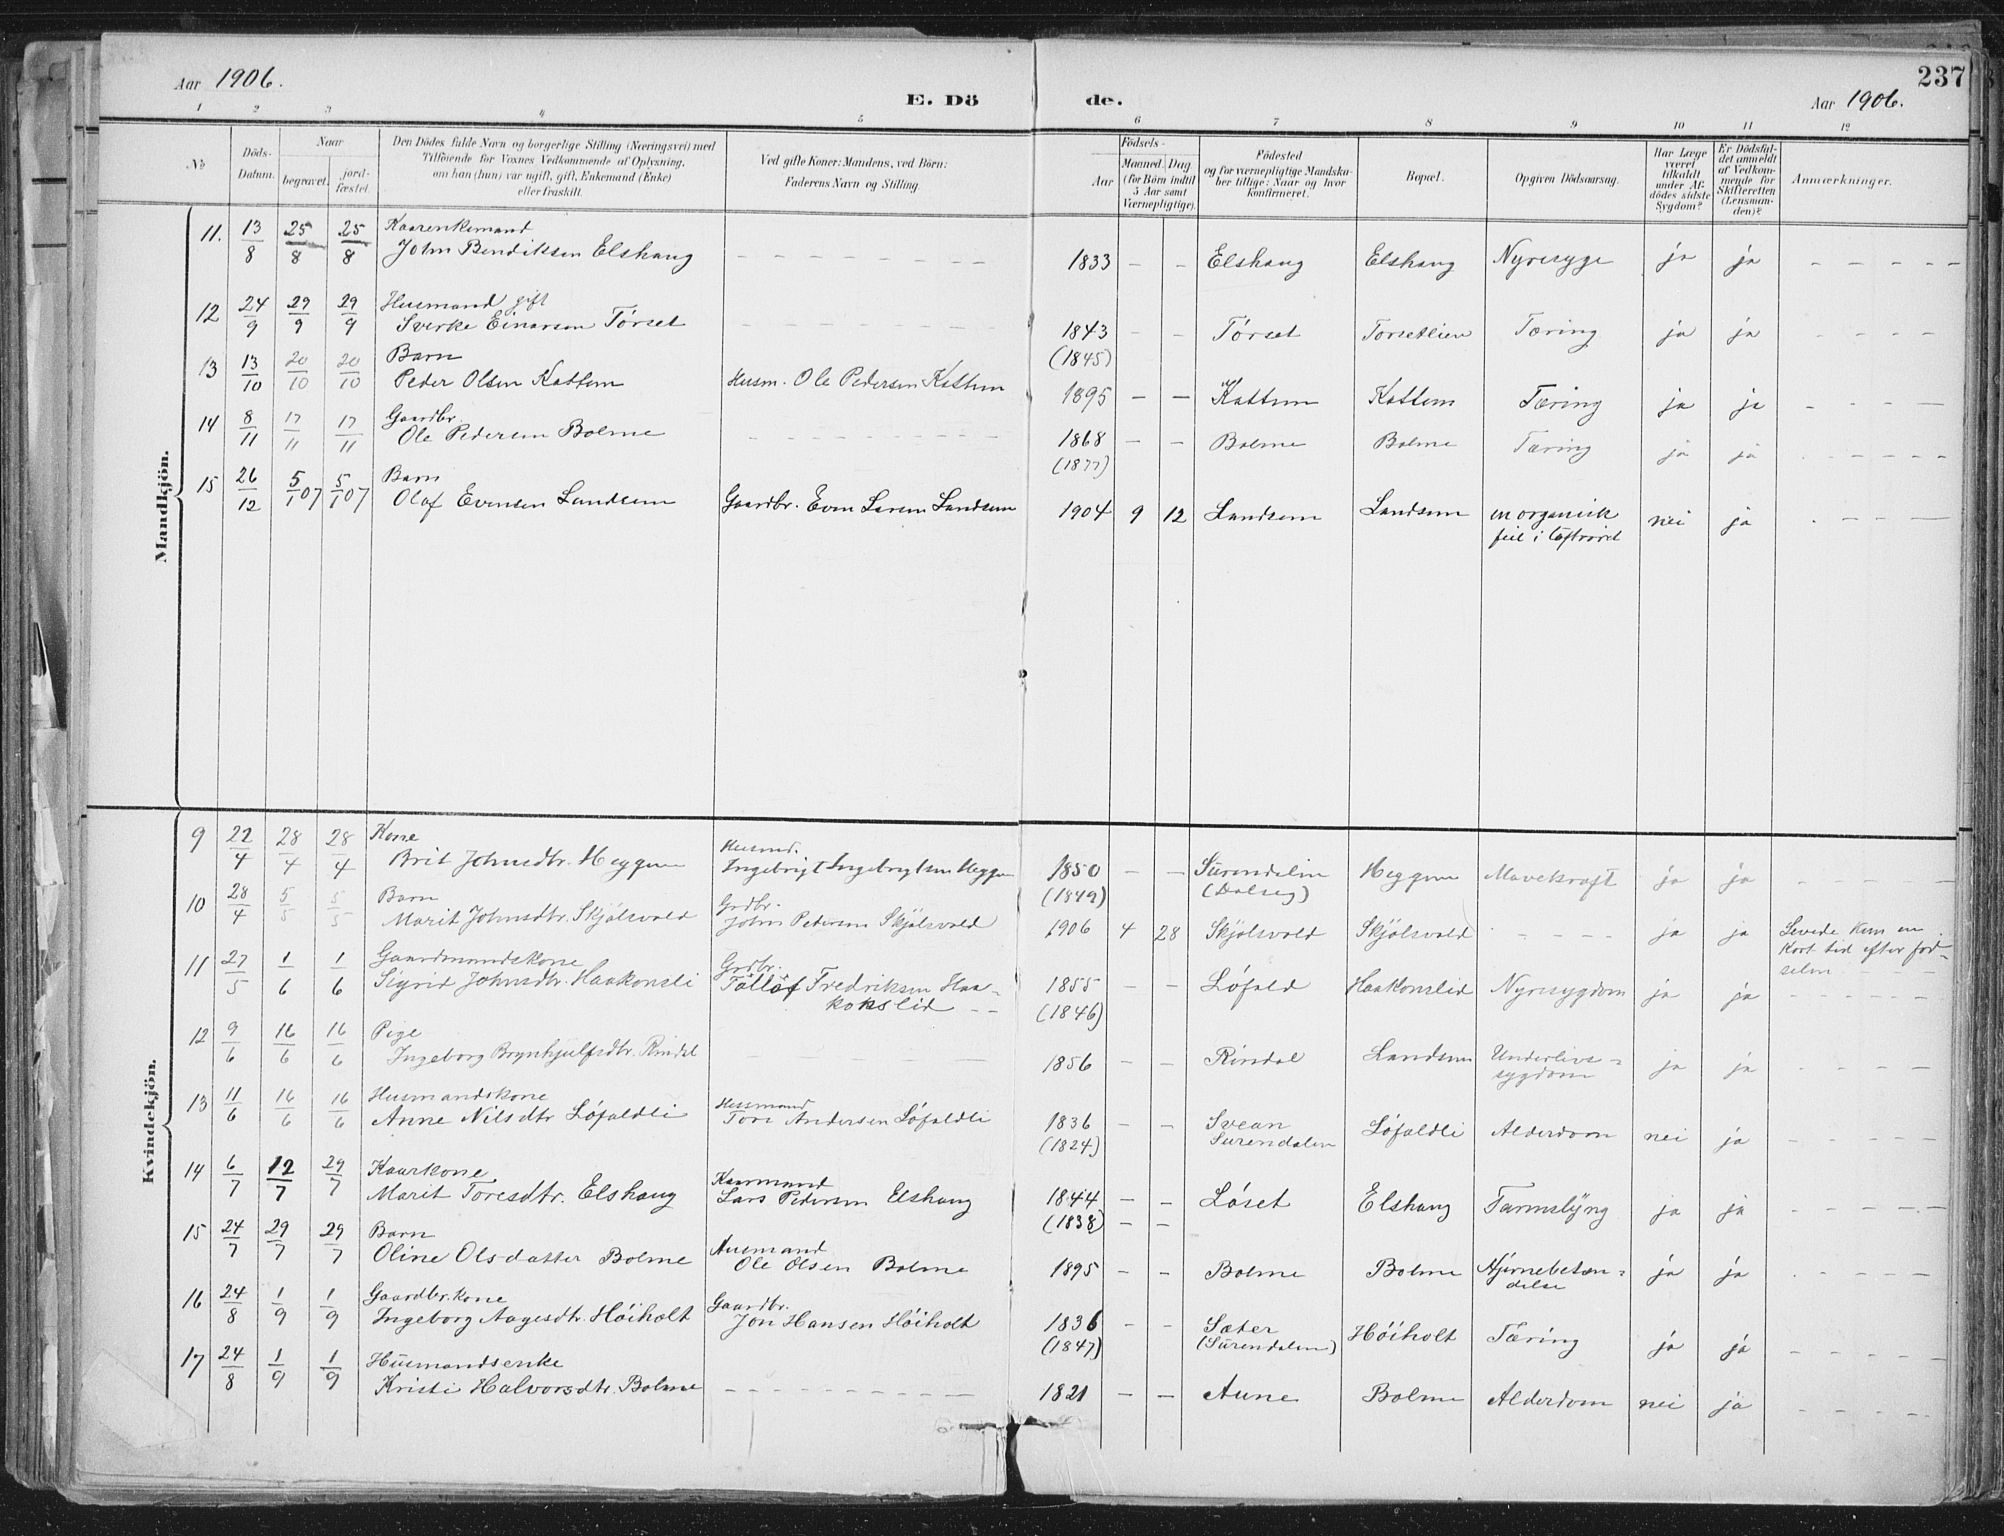 Aar 1906.
E. Dö de.
Aar 1906.
237
1 2 3 4 5 6 7 8 9 10 11 12
№
Döds-Datum.
Naar
begravet.
jord-fæstet.
Den Dödes fulde Navn og borgerlige Stilling (Næringsvei) med
Tilföiende for Voxnes Vedkommende af Oplysning,
om han (hun) var ugift, gift, Enkemand (Enke)
eller fraskilt.
Ved gifte Koner: Mandens, ved Börn:
Faderens Navn og Stilling.
Födsels-
Aar
Maaned. Dag
(for Börn indtil
5 Aar samt
Værnepligtige).
Födested
og for værnepligtige Mandska-
ber tillige: Naar og hvor
konfirmeret.
Bopæl.
Opgiven Dödsaarsag.
Har Læge
været
tilkaldt
under Af-
dödes sidste
Sygdom?
Er Dödsfal-
det anmeldt
af Vedkom-
mende for
Skifteretten
(Lensman-
den)?
Anmærkninger.
Mandkjön.
11. 13/8 25/8 25/8 Kaarenkemand
John Bendiksen Elshaug - - - 1833 - - Elshaug Elshaug Nyresyge ja ja - - -
12 24/9 29/9 29/9 Husmand gift
Sverke Einarsen Tørset - - - 1843 - - Tørset Torsetlien Tæring ja ja - - -
(1845)
13 13/10 20/10 20/10 Barn
Peder Olsen Kattem Husm. Ole Pedersen Kattem 1895 - - Kattem Kattem Tæring ja ja - - -
14 8/11 17/11 17/11 Gaardbr.
Ole Pedersen Bolme - - - 1868 - - Bolme Bolme Tæring ja ja - - -
(1877)
15 26/12 5/1 07 5/1 07 Barn
Olaf Evensen Landsem Gaardbr. Even Larsen Landsem 1904 9 12 Landsem Landsem en organisk nei ja - - -
feil i Luftrøret
Kvindekjön.
9 22/4 28/4 28/4 Kone
Brit Johnsdtr. Heggem Husmd.
Ingebrigt Ingebrigtsen Heggem 1850 - - Surendalen Heggem Mavekræft ja ja - - -
(1849) (Dalseg)
10 28/4 5/5 5/5 Barn
Marit Johnsdtr. Skjølsvold Grdbr.
John Pedersen Skjølsvold 1906 4 28 Skjølsvold Skjølsvold - - - ja ja Levede kun en
kort tid efter fød-
selen
11 27/5 1/6 1/6 Gaardmandskone
Sigrid Johnsdtr. Haakonsli Grdbr.
Tollof Fredriksen Haa-
kokslid 1855 - - Løfald Haakonslid Nyresygdom ja ja - - -
(1846)
12 9/6 16/6 16/6 Pige
Ingeborg Brynhjulfsdtr. Rindal - - - 1856 - - Rindal Landsem Underlivs- ja ja - - -
sygdom
13 11/6 16/6 16/6 Husmandskone
Anne Nilsdtr Løfaldli Husmand
Tore Andersen Løfaldli 1836 - - Svean Løfaldli Alderdom nei ja - - -
(1824) Surendalen
14 6/7 12/7 29/7 Kaarkone
Marit Toresdtr. Elshaug Kaarmand
Lars Pedersen Elshaug 1844 - - Løset Elshaug Tarmslyng ja ja - - -
(1838) - -
15 24/7 29/7 29/7 Barn
Oline Olsdatter Bolme Husmand
Ole Olsen Bolme 1895 - - Bolme Bolme Hjernebetæn- ja ja - - -
delse
16 24/8 1/9 1/9 Gaardbr.kone
Ingeborg Aagesdtr. Høiholt Gaardbr.
Jon Hansen Høiholt 1836 - - Sæter Høiholt Tæring ja ja - - -
(1847) (Surendalen)
17 24/8 1/9 1/9 Husmandsenke
Kristi Halvorsdtr. Bolme - - - 1821 - - Aune Bolme Alderdom nei ja - - -